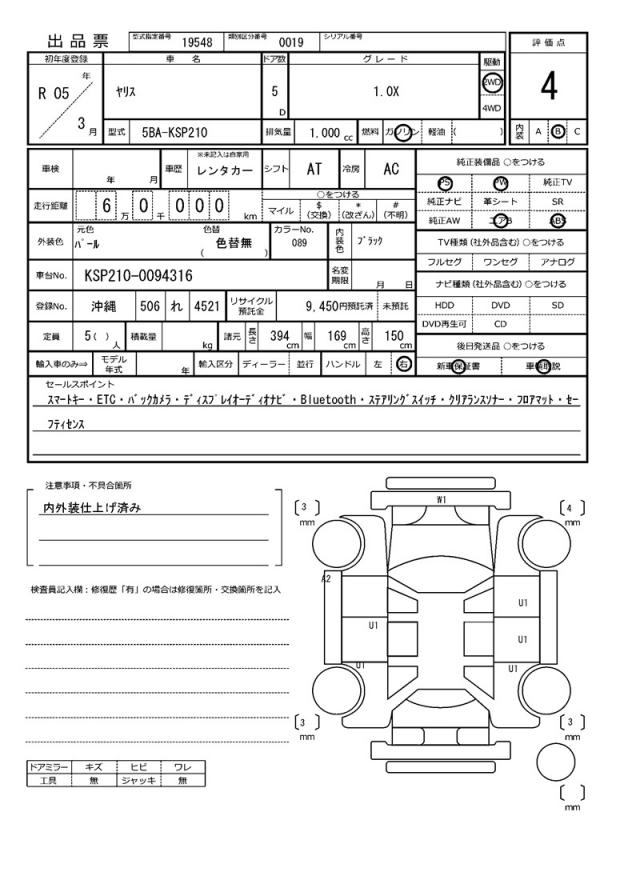 出品票 型式指定番号 19548 類別区分番号 0019 シリアル番号
評価点
4
内装 A B C
初年度登録 車名 ドア数 グレード 駆動
R 05 年 3 月 ヤリス 5 D 1.0X 2WD 4WD
型式 5BA-KSP210 排気量 1,000 cc 燃料 ガソリン 軽油 ( )
車検 年 月 車歴 ※未記入は自家用 レンタカー シフト AT 冷房 AC
走行距離 6 万 0 千 0 0 0 km ○をつける
マイル $(交換) *(改ざん) #(不明)
外装色 元色 パール 色替 色替無 ( ) カラーNo. 089 内装色 ブラック
車台No. KSP210-0094316 名変期限 月 日
登録No. 沖縄 506 れ 4521 リサイクル預託金 9,450円預託済 未預託
定員 5( ) 人 積載量 kg 諸元 長さ 394 cm 幅 169 cm 高さ 150 cm
輸入車のみ⇒ モデル年式 年 輸入区分 ディーラー 並行 ハンドル 左 右
純正装備品 ○をつける
PS PW 純正TV
純正ナビ 革シート SR
純正AW エアB ABS
TV種類(社外品含む)○をつける
フルセグ ワンセグ アナログ
ナビ種類(社外品含む)○をつける
HDD DVD SD
DVD再生可 CD
後日発送品 ○をつける
新車保証書 車輌取説
セールスポイント
スマートキー・ETC・バックカメラ・ディスプレイオーディオナビ・Bluetooth・ステアリングスイッチ・クリアランスソナー・フロアマット・セー
フティセンス
注意事項・不具合箇所
内外装仕上げ済み
検査員記入欄：修復歴「有」の場合は修復箇所・交換箇所を記入
ドアミラー キズ ヒビ ワレ
工具 無 ジャッキ 無
W1
3 mm
4 mm
A2
U1
U1
U1
U1
U1
3 mm
3 mm
mm